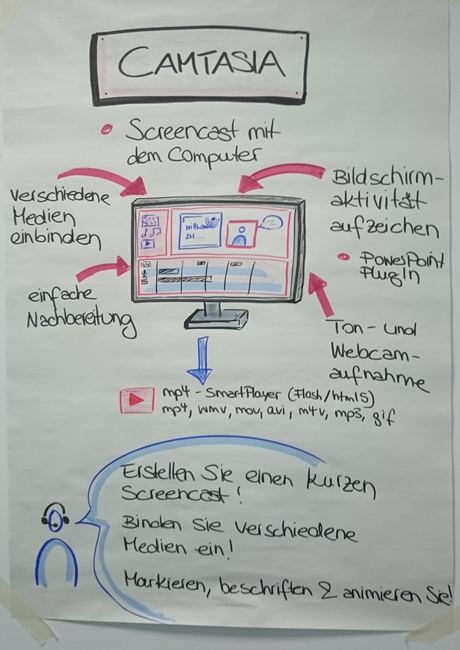 CAMTASIA
Screencast mit
dem Computer
Verschiedene
Medien
einbinden
Bildschirm-
aktivität
aufzeichen
PowerPoint
PlugIn
einfache
Nachbereitung
Ton- und
Webcam-
aufnahme
mp4 - SmartPlayer (Flash/html5)
mp4, wmv, mov, avi, m4v, mp3, gif
Erstellen Sie einen kurzen
Screencast!
Binden Sie verschiedene
Medien ein!
Markieren, beschriften & animieren Sie!